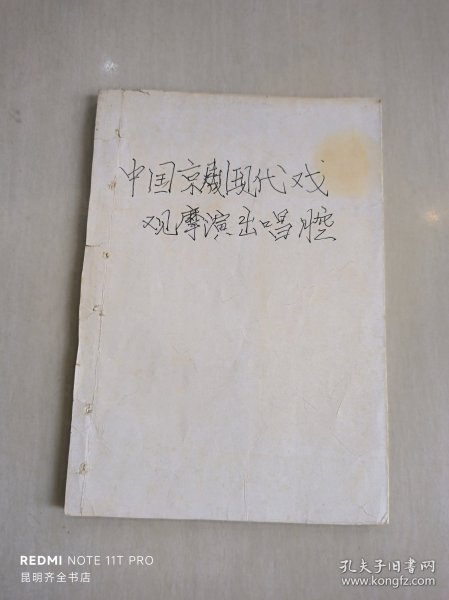 中国京剧现代戏
观摩演出唱腔
REDMI NOTE 11T PRO
昆明齐全书店
孔夫子旧书网
www.kongfz.com